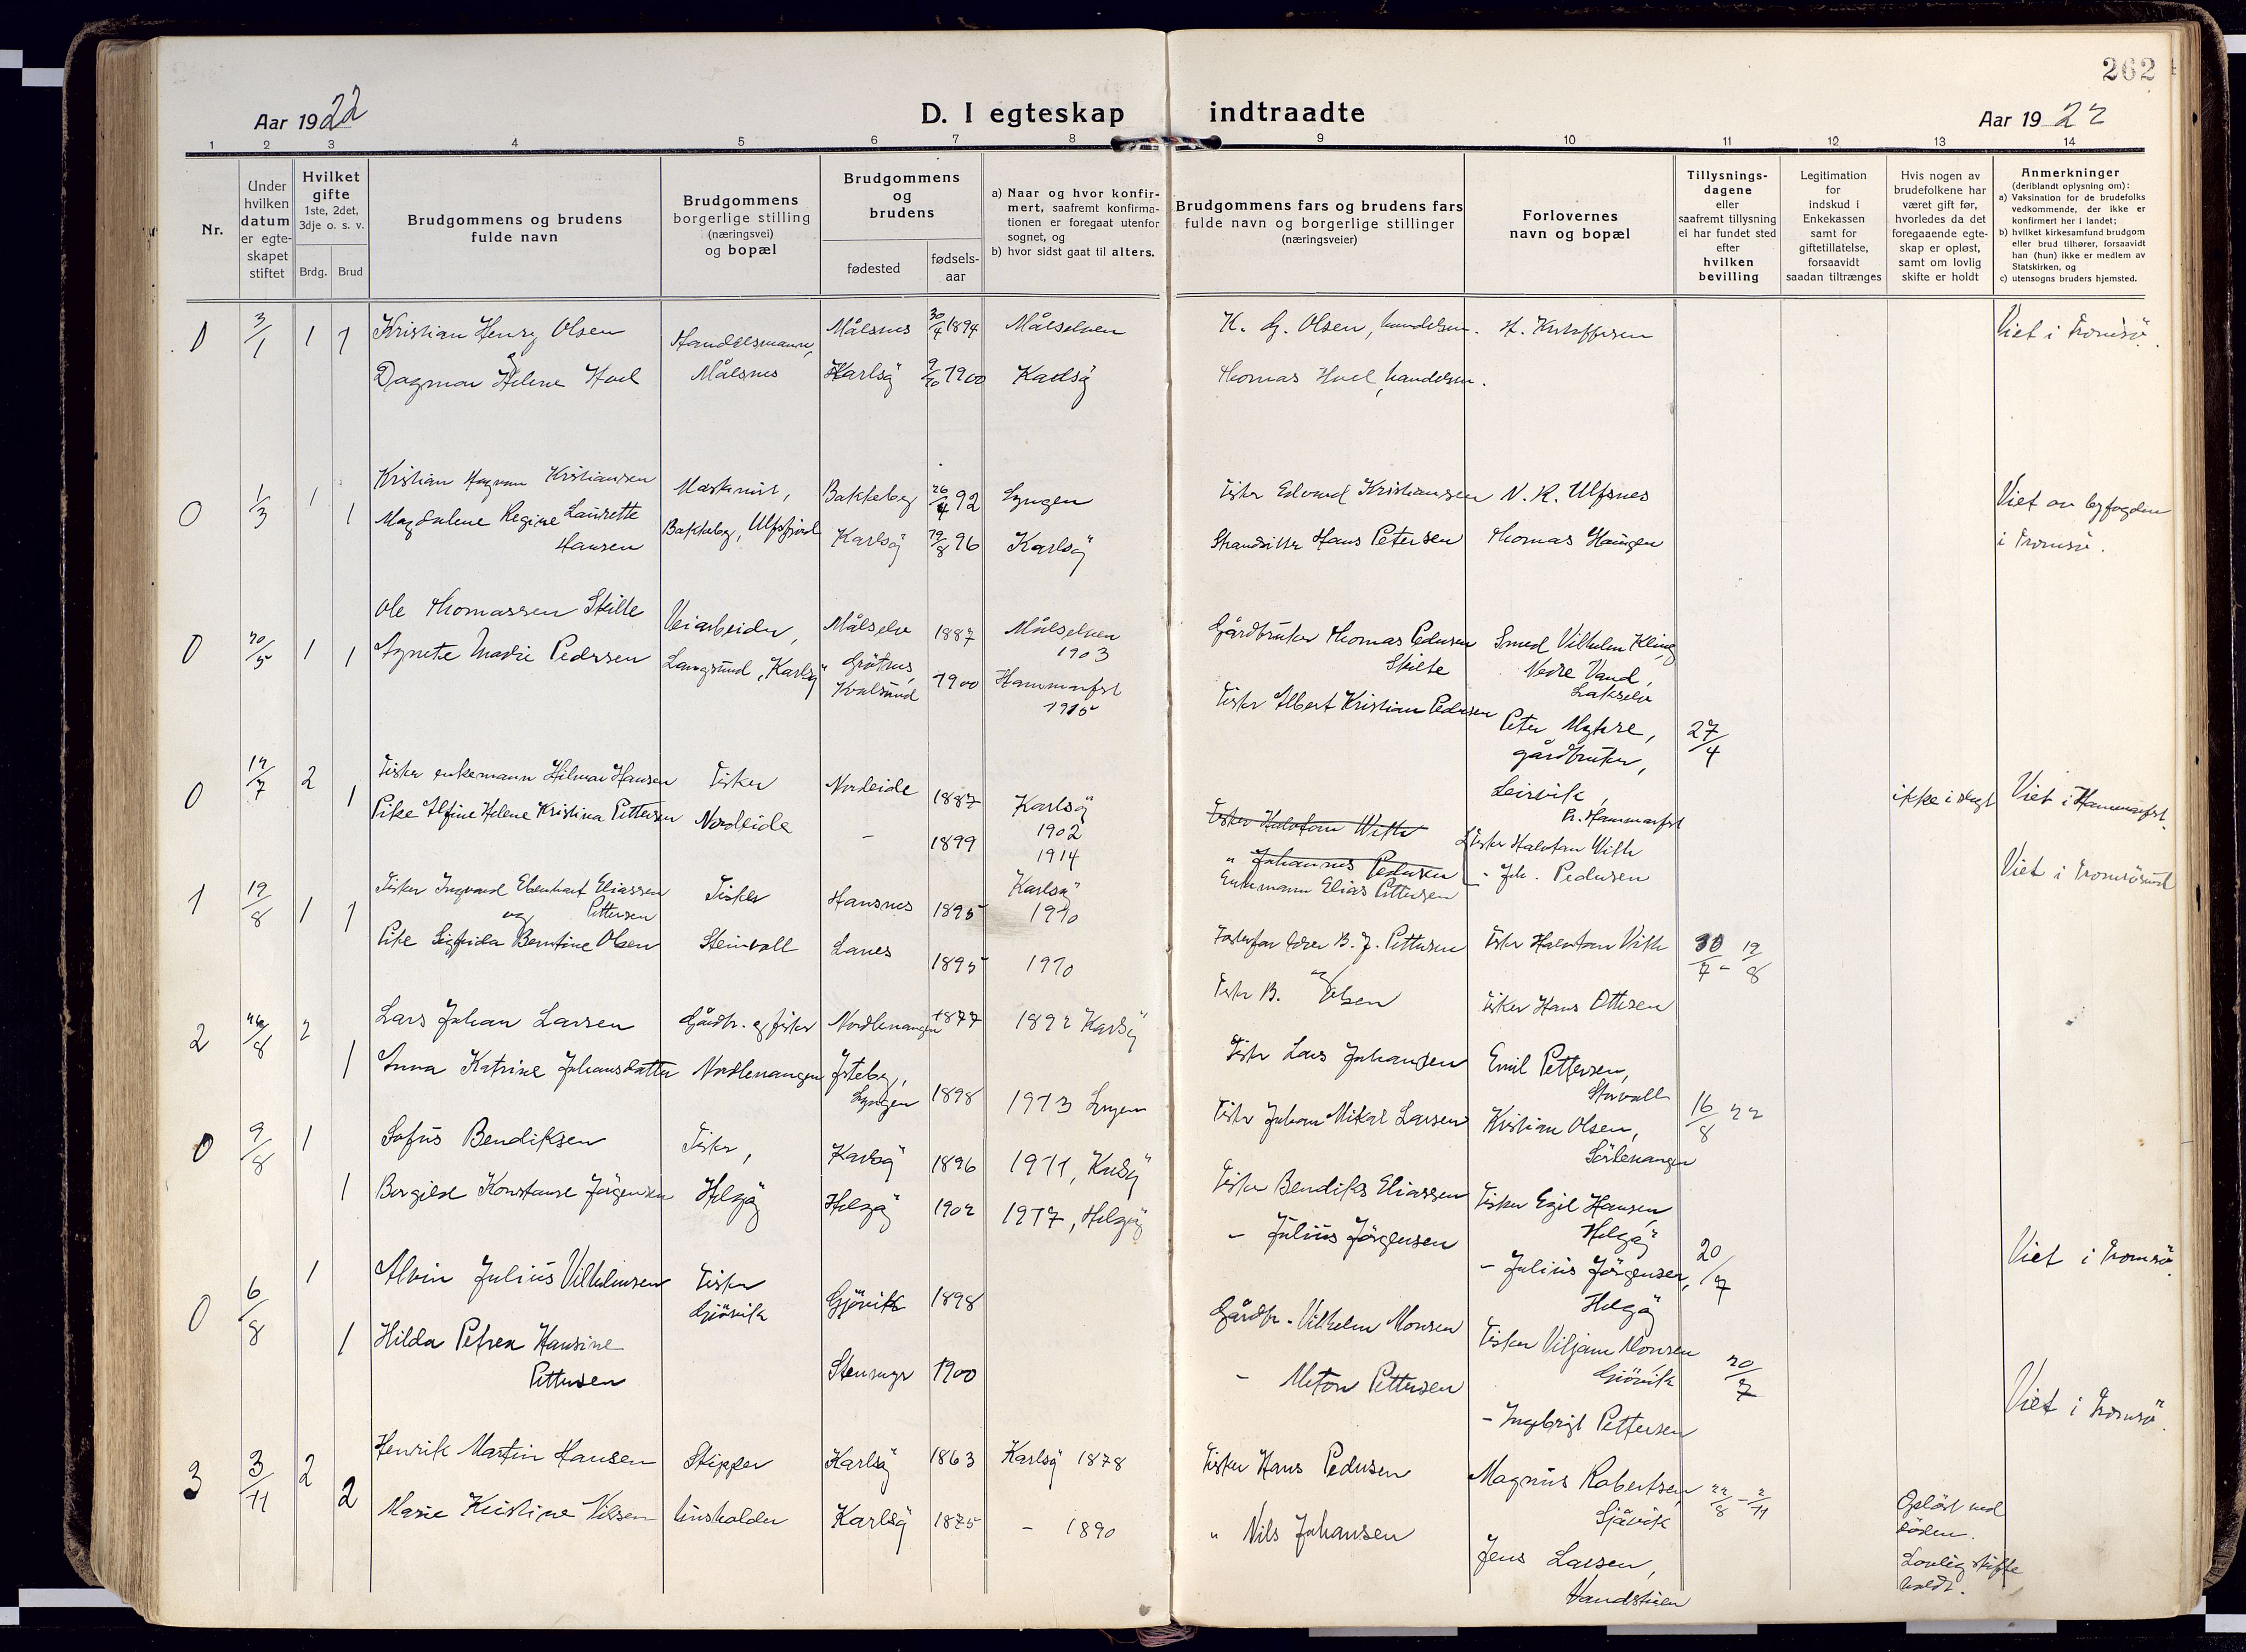 262
Aar 1922
D. I egteskap indtraadte
Aar 1922
1 2 3 4 5 6 7 8 9 10 11 12 13 14
Nr.
Under hvilken datum er egteskapet stiftet
Hvilket gifte 1ste, 2det, 3dje o. s. v.
Brdg. Brud
Brudgommens og brudens fulde navn
Brudgommens borgerlige stilling (næringsvei) og bopæl
Brudgommens og brudens
fødested
fødsels-aar
a) Naar og hvor konfirmert, saafremt konfirmationen er foregaat utenfor sognet, og
b) hvor sidst gaat til alters.
Brudgommens fars og brudens fars fulde navn og borgerlige stillinger (næringsveier)
Forlovernes navn og bopæl
Tillysningsdagene eller saafremt tillysning ei har fundet sted efter hvilken bevilling
Legitimation for indskud i Enkekassen samt for giftetillatelse, forsaavidt saadan tiltrænges
Hvis nogen av brudefolkene har været gift før, hvorledes da det foregaaende egteskap er opløst, samt om lovlig skifte er holdt
Anmerkninger (deriblandt oplysning om):
a) Vaksination for de brudefolks vedkommende, der ikke er konfirmert her i landet;
b) hvilket kirkesamfund brudgom eller brud tilhører, forsaavidt han (hun) ikke er medlem av Statskirken, og
c) utensogns bruders hjemsted.
0 3/1 1 1 Kristian Henry Olsen Handelsmann, Målsnes 30/4 1894 Målselven K. G. Olsen, handelsm. Viet i Tromsø.
Dagmar Helene Hoel Målsnes Karlsø 9/10 1900 Karlsø Thomas Hoel, handelsm.
0 1/3 1 Kristian Kristiansen Maskinist, Bakkeby 26/4 92 Lyngen Fisker Edvard Kristiansen N. K. Ulfsnes Viet av byfogden
1 Magdalene Regine Laurette Bakkeby, Ulfsfjord Karlsø 19/8 96 Karlsø Strandsitter Hans Petersen Thomas Haugen i Tromsø.
Hansen
0 20/5 1 1 Ole Thomassen Skille Veiarbeider, Målselv 1887 Målselven 1903 Gårdbruker Thomas Pedersen Skille Smed Vilhelm Kling
Agnete Marie Pedersen Langsund, Karlsø Grøtnes, Kvalsund 1900 Hammerfest 1915 Fisker Albert Kristian Pedersen Nedre Vand, Lakselv
Peter Myhre, gårdbruker, Leirvik, Hammerfest 27/4
0 14/7 2 Fisker enkemann Hilmar Hansen Fisker Nordeide 1887 Karlsø 1902 Fisker Halvdan With ikke i slegt Viet i Hammerfest.
1 Pike Alfine Helene Kristina Pettersen Nordeide - 1899 1914 " Johannes Pedersen Fisker Halvdan With
Enkemann Elias Pettersen - Joh. Pedersen
1 19/8 1 1 Fisker Ingvard Eliassen Pettersen Fisker Hansnes 1895 Karlsø 1910 B. J. Pettersen Fisker Halvdan With 30/7 - 19/8 Viet i Tromsøsund
og
Pike Sigfrida Berntine Olsen Steinvoll Lanes 1895 1910 Fisker B. Olsen Fisker Hans Ottesen
2 26/8 2 Lars Johan Larsen Gårdbr. og fisker Nordlenangen 1877 1892 Karlsø Fisker Lars Johansen Emil Pettersen, Storvoll
1 Anna Katrine Johansdatter Nordlenangen Lyngen 1898 1913 Lyngen Fisker Johan Mikal Larsen Kristian Olsen, Sørlenangen 16/8 22
0 9/8 1 Sofus Bendiksen Fisker, Karlsø 1896 1911, Karlsø Fisker Bendiks Eliassen Fisker Egil Hansen, Helgøy
1 Borgild Konstanse Jørgensen Helgøy Helgøy 1902 1917, Helgøy - Julius Jørgensen - Julius Jørgensen, Helgøy 20/7
0 6/8 1 Alvin Julius Vilhelmsen Fisker Gjøvik Gjøvik 1898 Gårdbr. Vilhelm Monsen Fisker Viljam Monsen Gjøvik 20/7 Viet i Tromsø.
1 Hilda Petrea Hansine Pettersen 1900 - Meton Pettersen - Ingebrigt Pettersen
3 3/11 2 Henrik Martin Hansen Skipper Karlsø 1863 Karlsø 1878 Fisker Hans Pedersen Magnus Robertsen, Sjåvik 22/8 - 2/11 Viet i Tromsø.
2 Marie Kristine Nilsen Karlsø 1875 - 1890 " Nils Johansen Jens Larsen, Vandstuen
Opløst ved døden.
Lovlig skifte holdt.